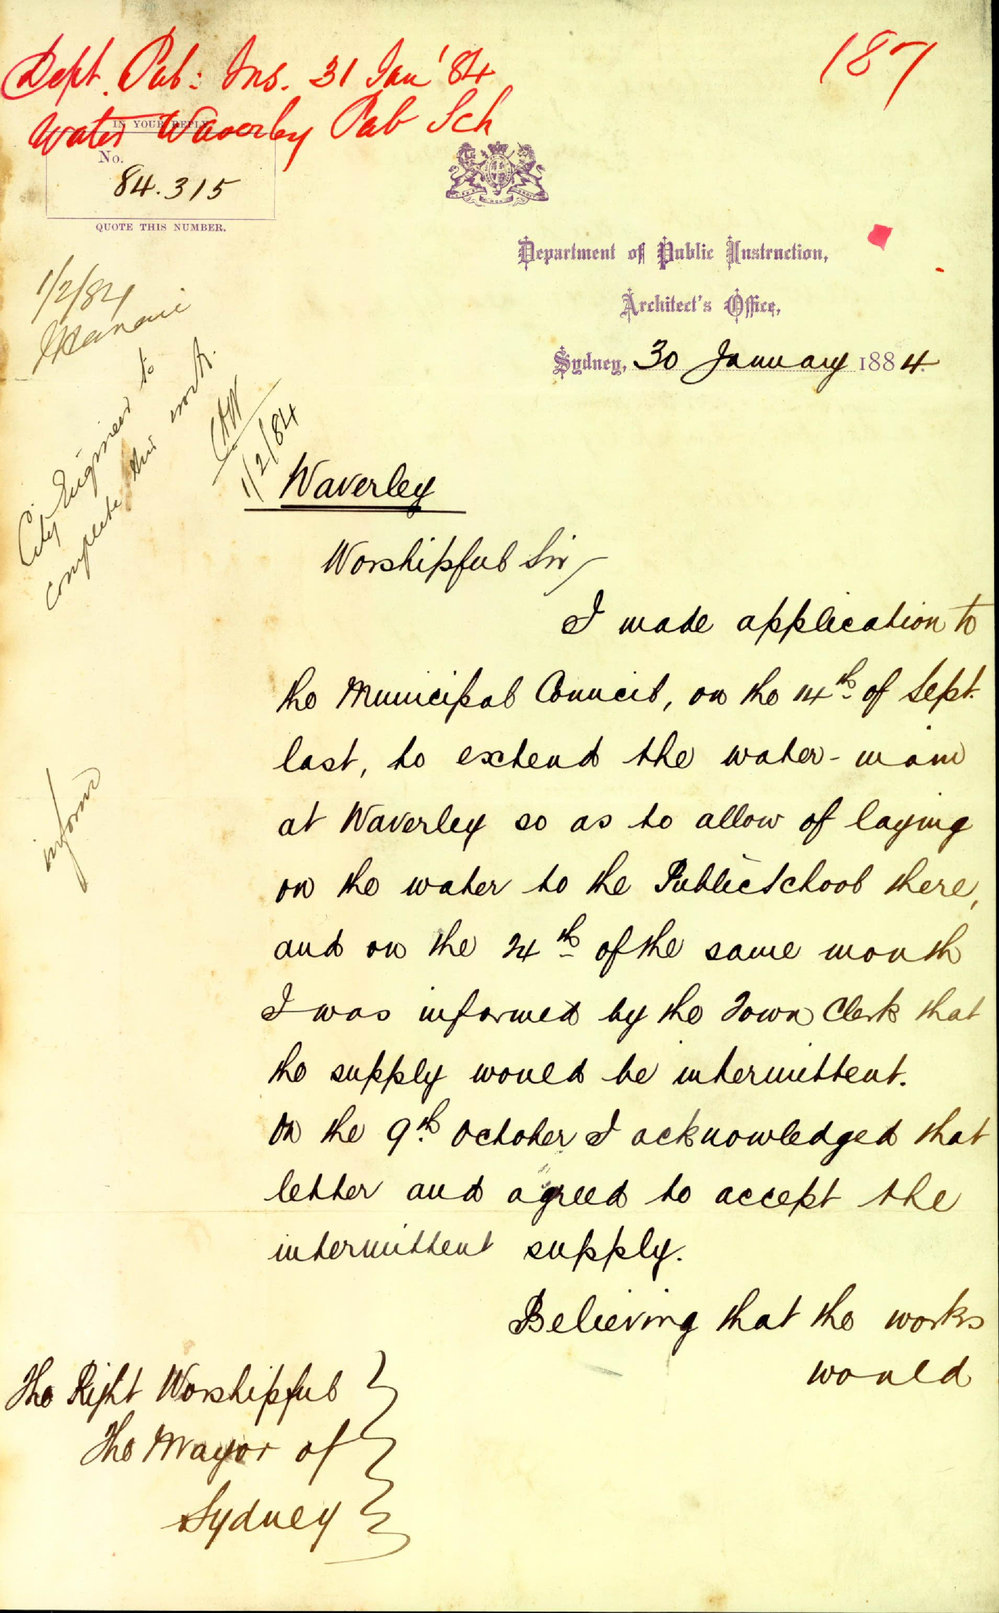 187
Dept. Pub: Ins. 31 Jan' 84
Water Waverley Pub Sch
IN YOUR REPLY
No.
84.315
QUOTE THIS NUMBER.
Department of Public Instruction,
Architect's Office,
Sydney, 30 January 1884.
1/2/84
City Engineer to
complete this work.
1/2/84
inform
Waverley
Worshipful Sir
I made application to
the Municipal Council, on the 14th of Sept.
last, to extend the water-main
at Waverley so as to allow of laying
on the water to the Public School there,
and on the 24th of the same month
I was informed by the Town Clerk that
the supply would be intermittent.
On the 9th October I acknowledged that
letter and agreed to accept the
intermittent supply.
Believing that the works
would
The Right Worshipful
The Mayor of
Sydney